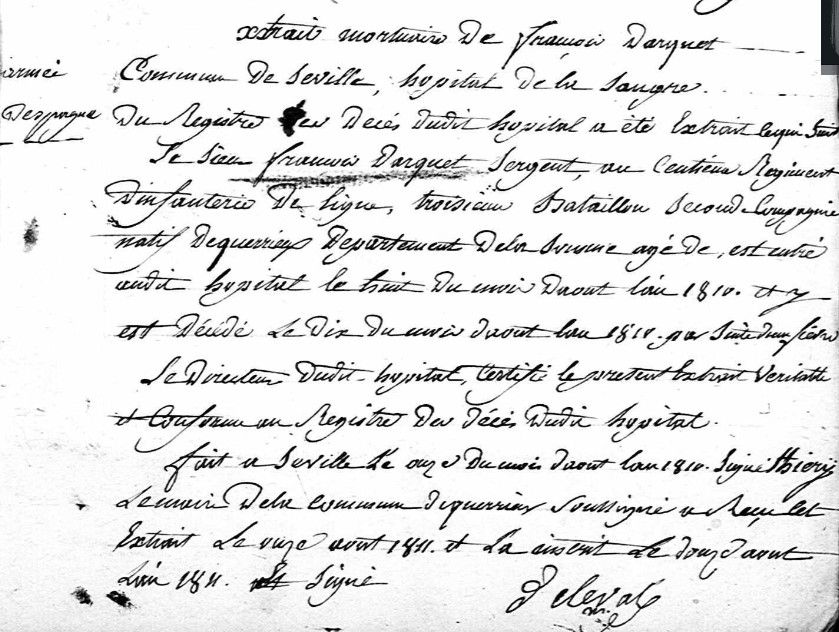 extrait mortuaire De françois Darquet
armée
Despagne
Commune De Seville, hopital de la Sangre.
Du Registre des Decés dudit hopital a eté Extrait cequi Suit
Le Sieur françois Darquet Sergent, au Centieme Regiment
D'infanterie De Ligne, troisieme Bataillon Seconde Compagnie
natif Dequerrieux Departement Dela Somme agé de, est entré
audit hopital le huit Du mois Daout l'an 1810. et y
est Décédé Le Dix du mois daout lan 1810. par Suite dune fievre
Le Directeur Dudit hopital, Certifie le present Extrait Veritable
et Conforme au Registre Des Décés Dudit hopital.
fait a Seville Le onze Du mois daout lan 1810. Signé thiery
Lemaire Dela Commune dequerrieux Soussigné a Reçu Cet
Extrait Le onze aout 1811. et La inscrit Le douze aout
Lan 1811. Et Signé
Deleval